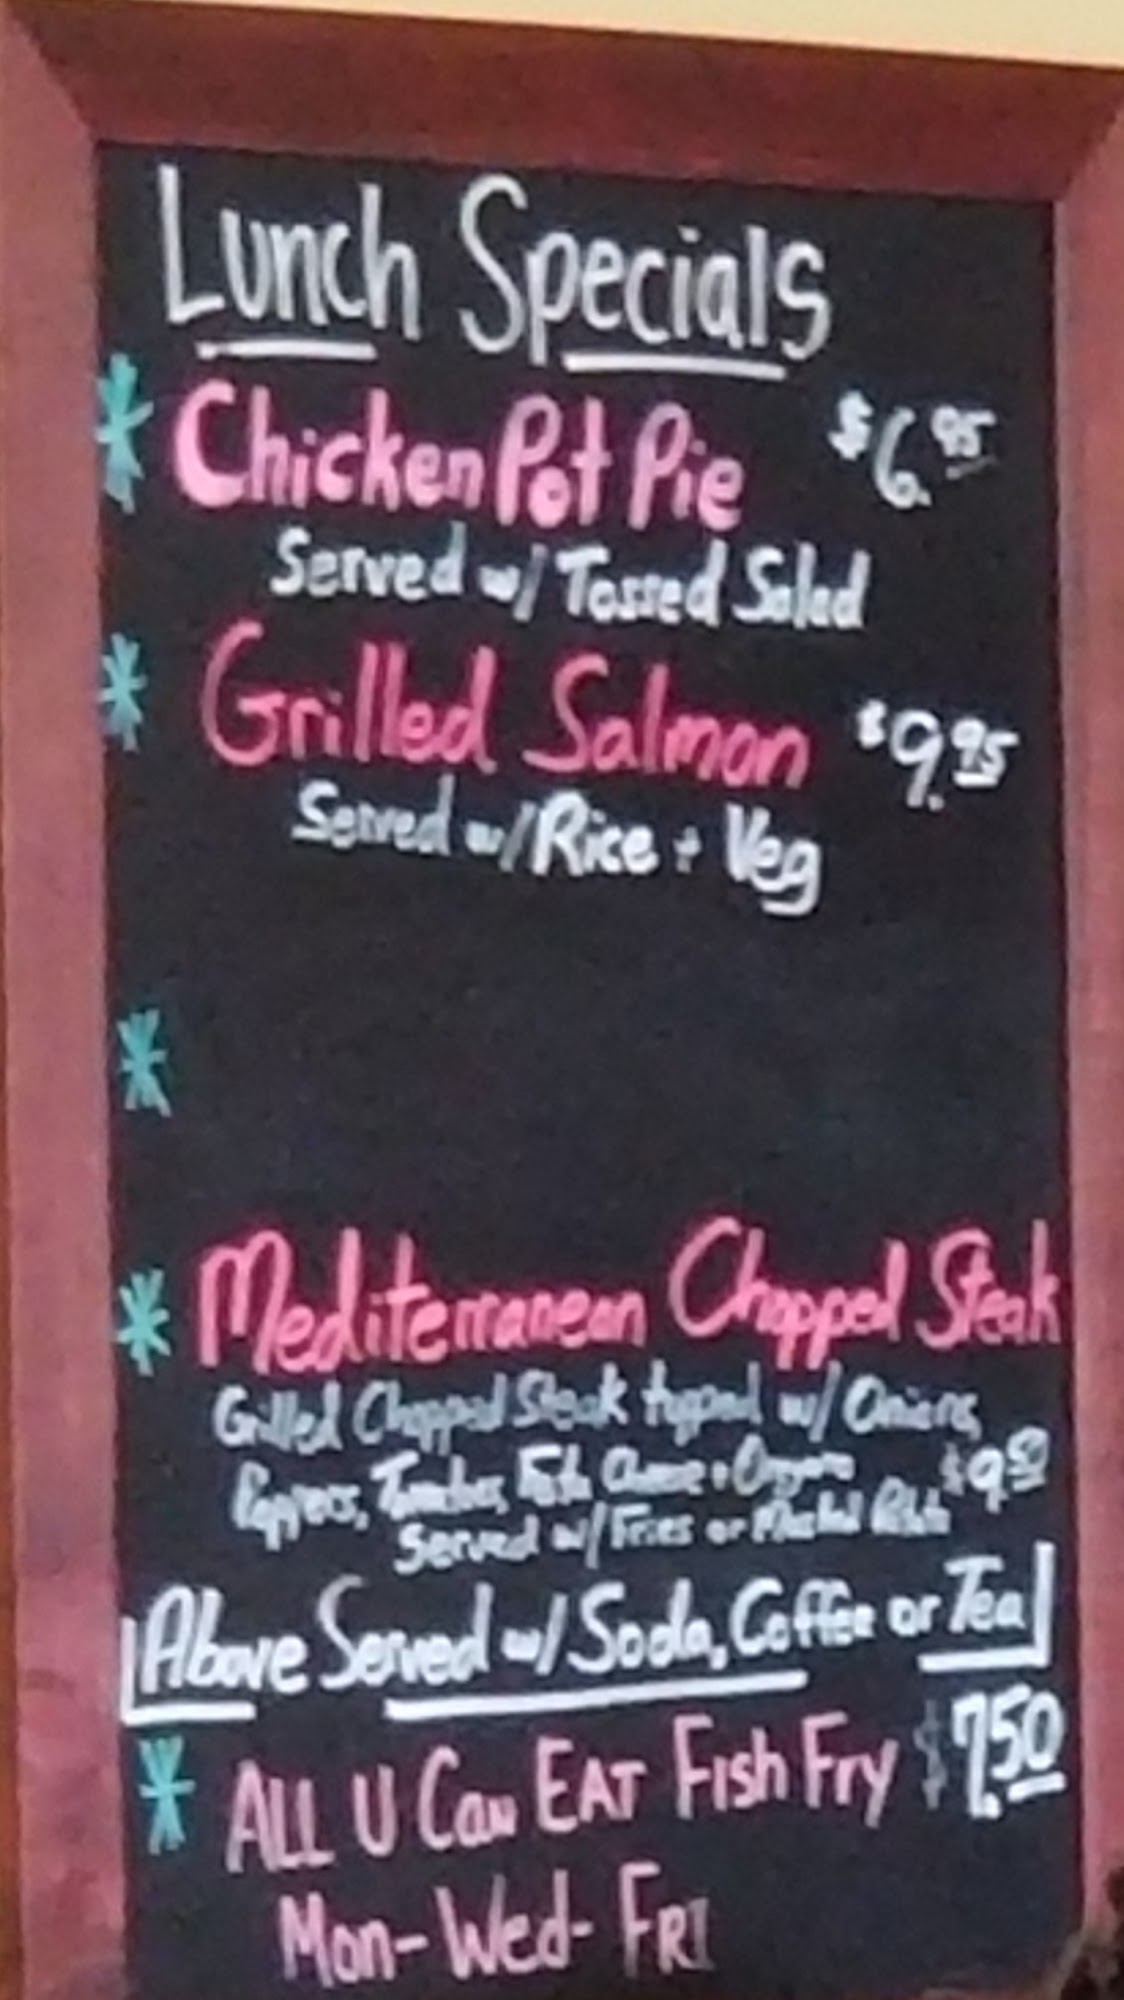 Lunch Specials
* Chicken Pot Pie $6.95
Served w/ Tossed Salad
* Grilled Salmon $9.95
Served w/ Rice + Veg
*
* Mediterranean Chopped Steak
Grilled Chopped Steak topped w/ Onions,
Peppers, Tomatoes, Feta Cheese + Oregano $9.50
Served w/ Fries or Mashed Potato
Above Served w/ Soda, Coffee or Tea
* ALL U Can EAT Fish Fry $7.50
Mon- Wed- FRI